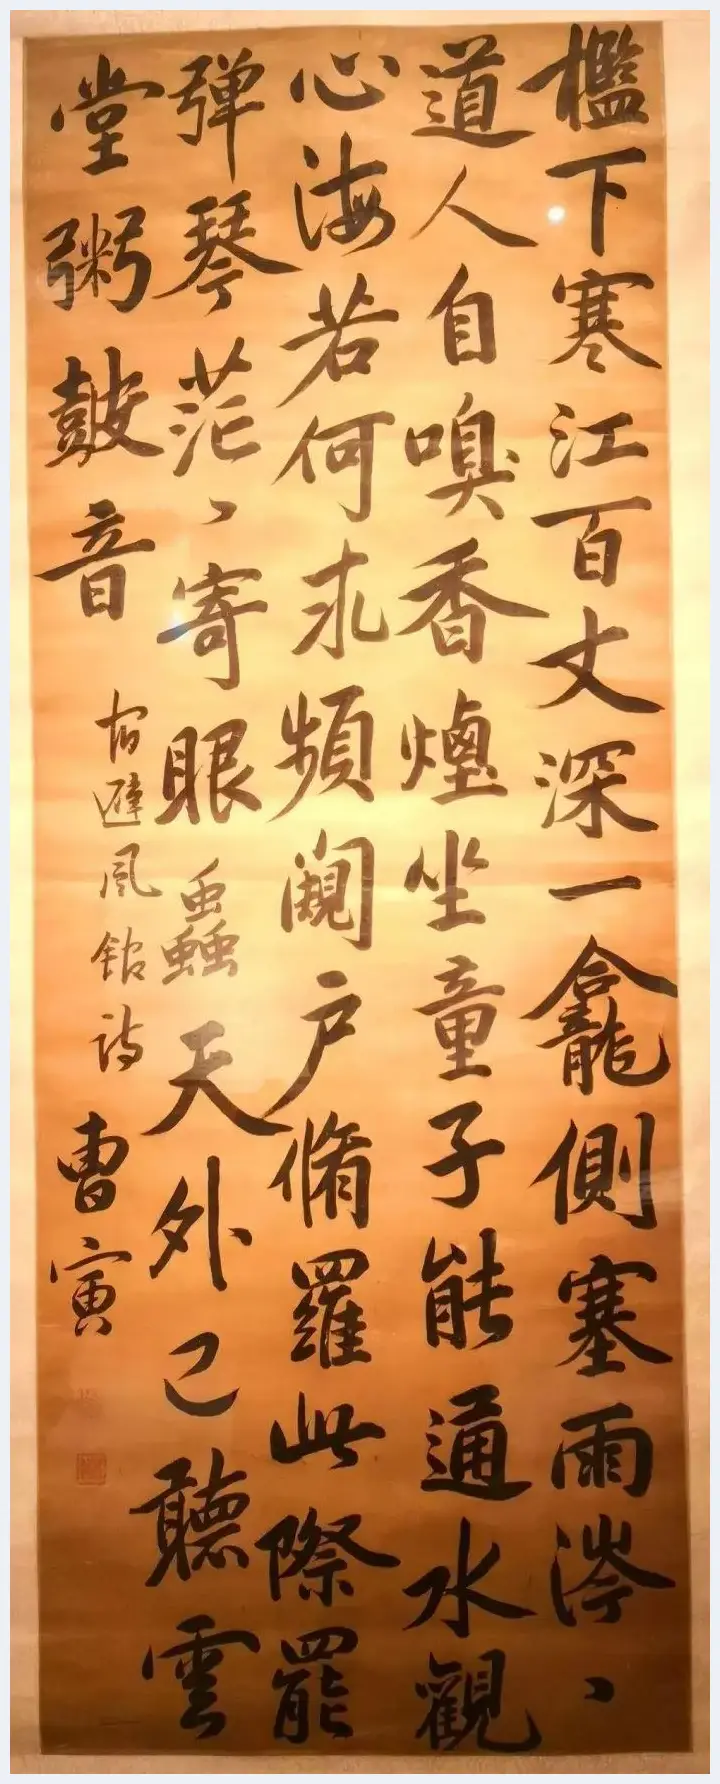 檻下寒江百丈深一龕側塞雨涔、
道人自嗅香煙坐童子能通水觀
心海若何求頻闚戶脩羅此際罷
弹琴茫、寄眼蟲天外已聽雲
堂粥鼓音
宿避風館詩
曹寅